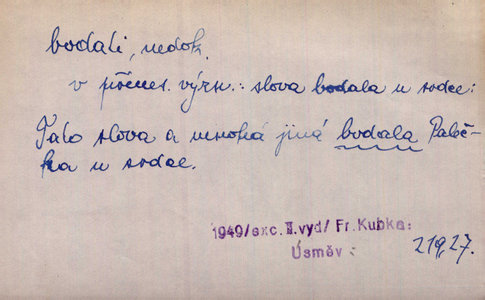 bodati, nedok.
v přenes. význ.: slova bodala u srdce:
Tato slova a mnohá jiná bodala Paleč-
ka u srdce.
1949/exc. II.vyd/ Fr.Kubka:
Úsměv :
219,27.